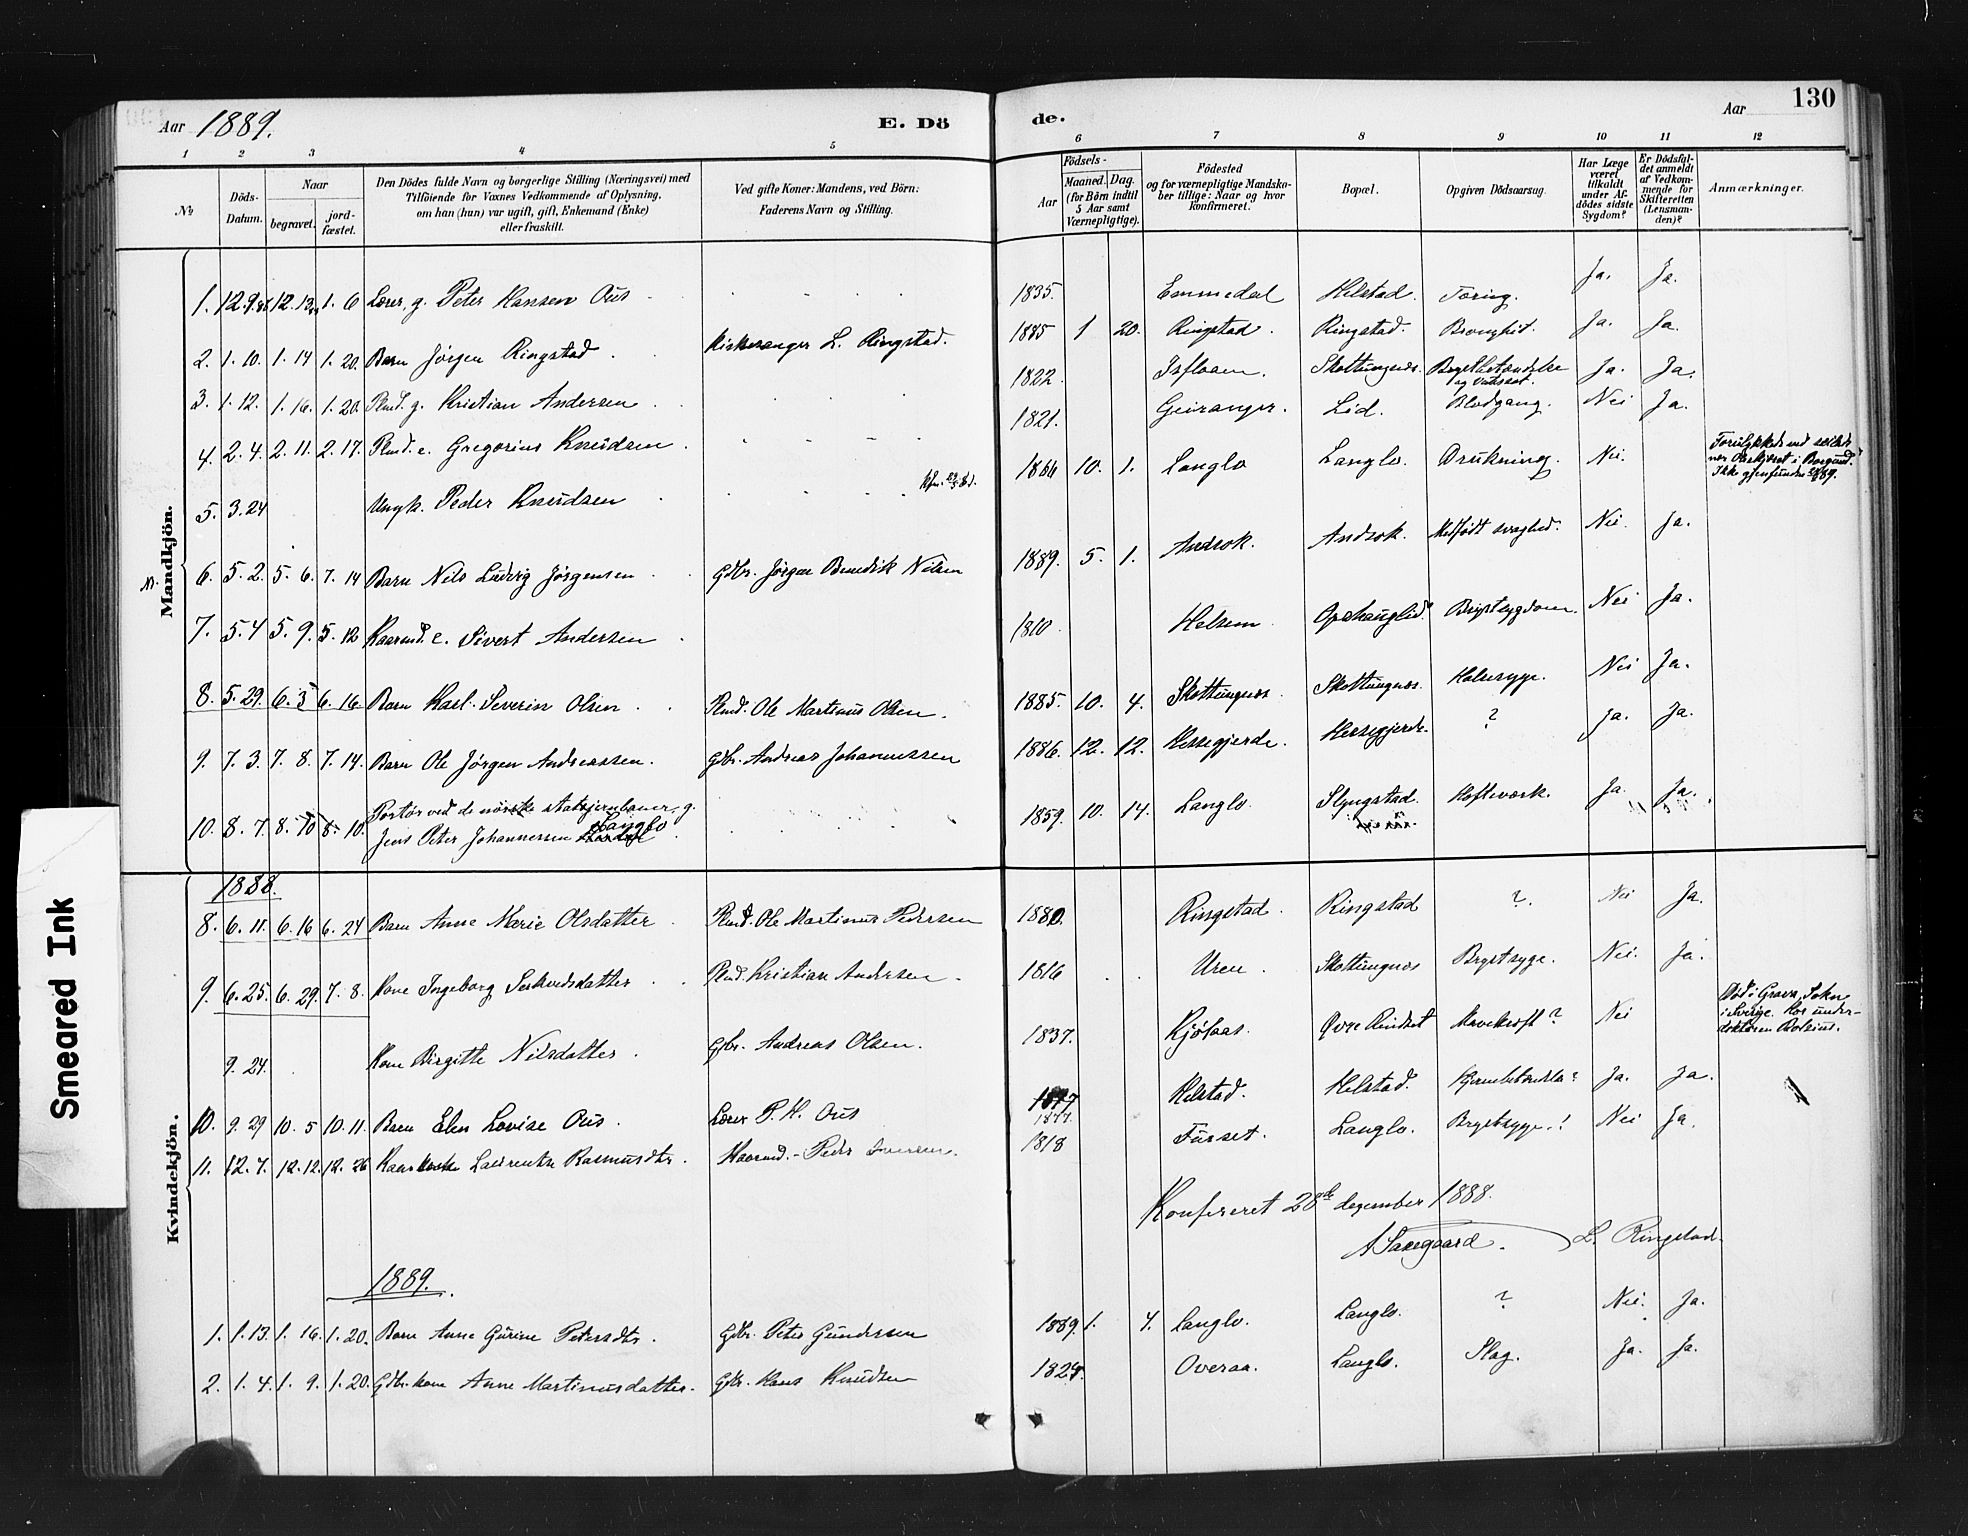 Aar 1889. E. Dö de. Aar 130
1 2 3 4 5 6 7 8 9 10 11 12
№
Döds-Datum.
Naar
begravet. jord-fæstet.
Den Dödes fulde Navn og borgerlige Stilling (Næringsvei) med
Tilföiende for Voxnes Vedkommende af Oplysning,
om han (hun) var ugift, gift, Enkemand (Enke)
eller fraskilt.
Ved gifte Koner: Mandens, ved Börn:
Faderens Navn og Stilling.
Födsels-
Aar Maaned. Dag.
(for Börn indtil
5 Aar samt
Værnepligtige).
Födested
og for værnepligtige Mandsko-
ber tillige: Naar og hvor
konfirmeret.
Bopæl.
Opgiven Dödsaarsag.
Har Læge
været
tilkaldt
under Af-
dödes sidste
Sygdom?
Er Dödsfal-
det anmeldt
af Vedkom-
mende for
Skifteretten
(Lensman-
den)?
Anmærkninger.
Mandkjön.
1. 12.9. 12.13. 1.6 Lærer, g. Peter Hansen Ous 1835. Emmedal Helstad. Tæring. Ja. Ja.
2. 1.10. 1.14 1.20. Barn Jörgen Ringstad Kirkesanger L. Ringstad. 1885 1 20. Ringstad. Ringstad. Ja. Ja.
3. 1.12. 1.16. 1.20. g. Kristian Andersen 1822. Isfloam. Skottungnæs. og vattsot. Ja. Ja.
4. 2.4. 2.11. 2.17. e. Gregorius Knudsen 1821. Geiranger. Lid. Blodgang. Nei Ja.
5. 3.24 Ungk. Peder Knudsen 1866 10. 1. Langlo Langlo. Drukning. Nei. Forulykkede ved
6. 5.2. 5.6. 7.14 Barn Nils Ludvig Jörgensen Gdbr. Jörgen Benedik Nilsen 1889. 5. 1. Andsok. Andsok. Medfödt svaghed. Nei. Ja.
7. 5.4 5.9. 5.12 Kaarmd. e. Sivert Andersen 1810 Helsem Opshauglid Brystsygdom. Nei Ja.
8. 5.29. 6.3 6.16. Barn Karl Severin Olsen Ole Martinus Olsen. 1885. 10. 4. Skottungnæs. Skottungnæs. Halssyge. Nei Ja.
9. 7.3. 7.8. 7.14. Barn Ole Jörgen Andreassen. Gdbr. Andreas Johannessen 1886. 12. 12. Hessegjerde. Hessegjerde. ? Ja. Ja.
10. 8.7. 8.10 8.10. Portör ved de norske statsjernbaner, g.
Jens Peter Johannessen Langlo 1859. 10. 14. Langlo. Slyngstad. Hofteværk. Ja. Ja.
Kvindekjön.
1888.
8. 6.11. 6.16 6.24 Barn Anne Marie Olsdatter Ole Martinus Pedersen 1880. Ringstad. Ringstad ? Nei Ja.
9. 6.25. 6.29. 7.8. Kone Ingeborg Kristian Andersen 1816 Uren. Skottungnæs Brystsyge. Nei. Ja.
9.24. Kone Birgitte Nilsdatter. Gbr. Andreas Olsen. 1837. Kjölaas. Övre Rindset Mavekræft? Nei Död i Grava Sokn
i Sverige. Hos under-
doktoren
10. 9.29 10.5 10.11. Barn Elen Lovise Ous. Lærer P. H. Ous 1877. Helstad. Helstad. Ja. Ja.
11. 12.7. 12.12. 12.26 Laurentse Rasmusdtr. Kaarmd. Peder Iversen. 1818 Furset. Langlo. Brystsyge! Nei Ja.
Konfereret 28de december 1888.
A Saxegaard. L. Ringstad.
1889.
1. 1.13. 1.16. 1.20. Barn Anne Gurine Petersdtr. Gdbr. Peter Gundersen 1889. 1. 4. Langlo. Langlo. ? Nei. Ja.
2. 1.4. 1.9. 1.20. Gdbr. kone Anne Martinusdatter. Gdbr. Hans Knudsen 1824. Overaa. Langlo. Slag. Ja. Ja.
Smeared Ink